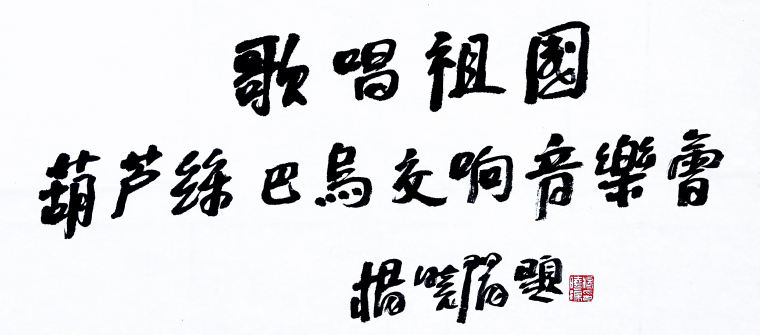 歌唱祖國
葫芦絲巴烏交响音樂會
楊曉閻題